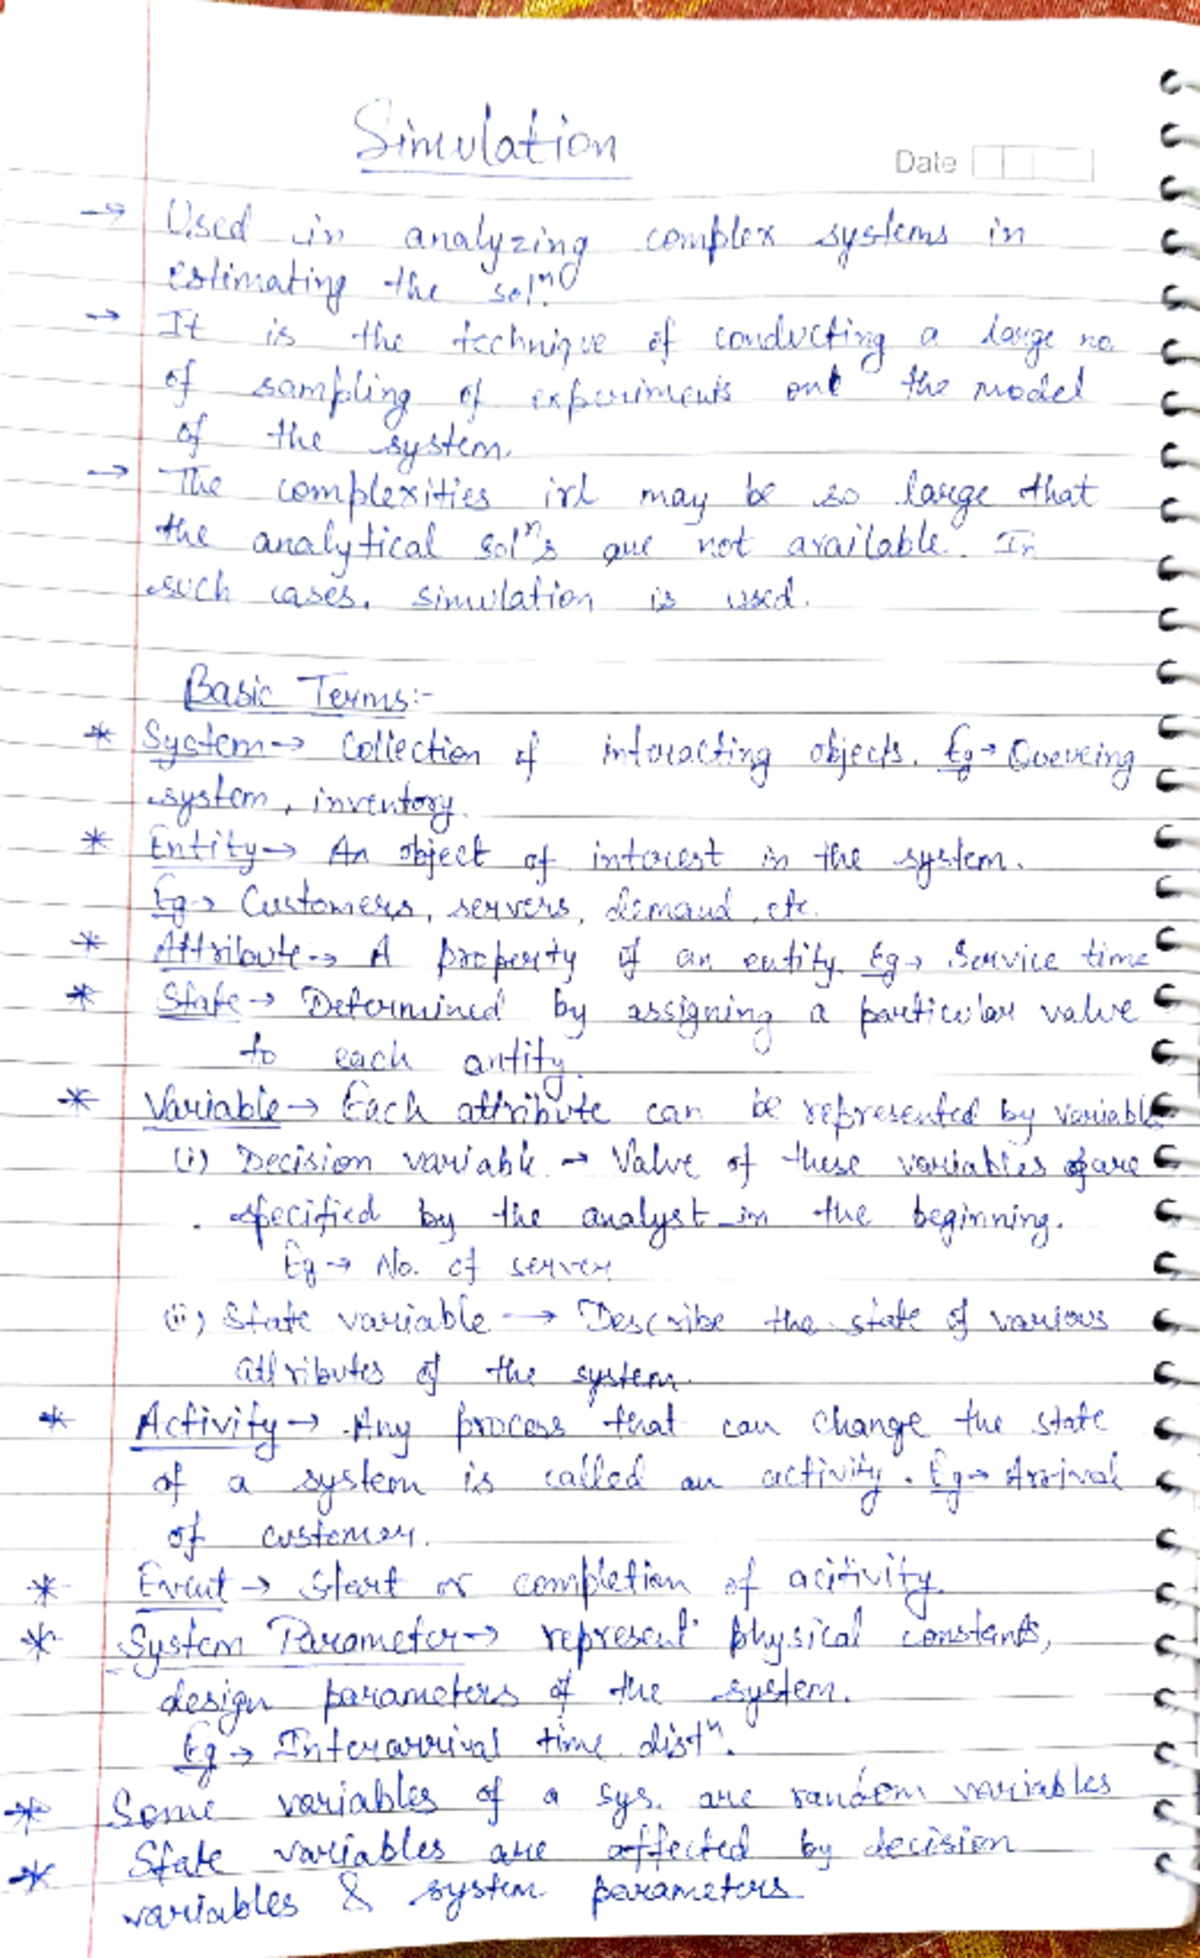 Simulation
Date
→ Used in analyzing complex systems in
estimating the solⁿ.
→ It is the technique of conducting a large no.
of sampling of experiments ont the model
of the system.
→ The complexities irl may be so large that
the analytical solⁿs are not available. In
such cases, simulation is used.
Basic Terms:-
* System → Collection of interacting objects. Eg → Queueing
system, inventory.
* Entity → An object of interest in the system.
Eg → Customers, servers, demand, etc.
* Attribute → A property of an entity. Eg → Service time
* State → Determined by assigning a particular value
to each antity.
* Variable → Each attribute can be represented by variable
(i) Decision variable → Value of these variables are
specified by the analyst in the beginning.
Eg → No. of server
(ii) State variable → Describe the state of various
attributes of the system.
* Activity → Any process that can change the state
of a system is called an activity. Eg → Arrival
of customer.
* Event → Start or completion of acitivity.
* System Parameter → represent physical constants,
design parameters of the system.
Eg → Interarrival time distⁿ.
* Some variables of a sys. are random variables
* State variables are affected by decision
variables & system parameters